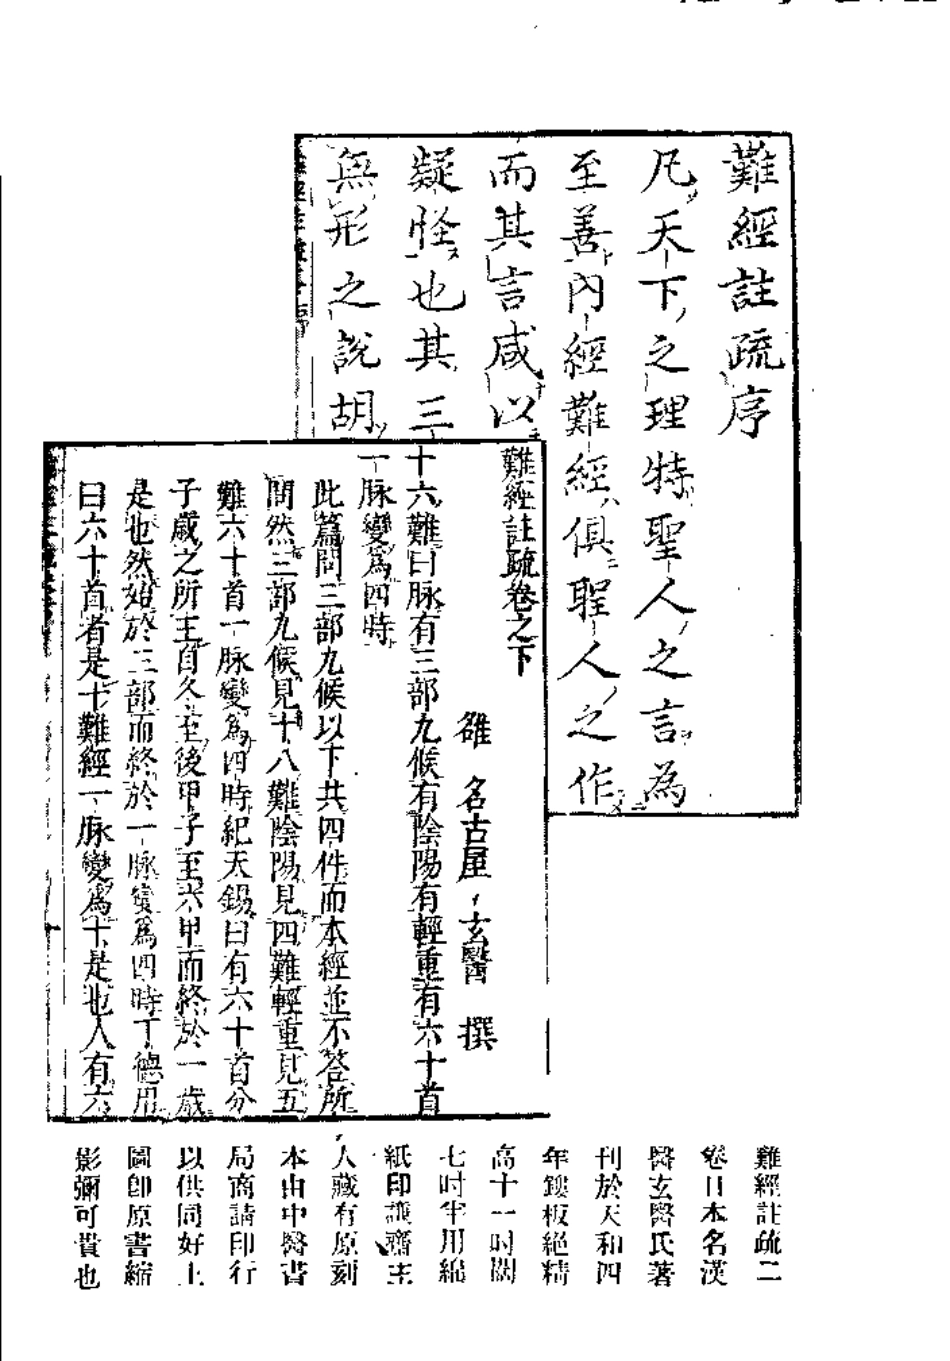 難經註疏序
凡天下之理特聖人之言為
至善内經難經俱聖人之作
而其言咸以
疑怪也其三
無形之說胡
難經註疏卷之下
雒 名古屋玄醫 撰
十六難曰脉有三部九候有陰陽有輕重有六十首
一脉變為四時
此篇問三部九候以下共四件而本經並不答所
問然三部九候見十八難陰陽見四難輕重見五
難六十首一脉變為四時紀天錫曰有六十首分
子歲之所王自冬至後甲子至六甲而終於一歲
是也然始於三部而終於一脉變爲四時丁德用
曰六十首者是十難經一脉變爲十是也人有六
難經註疏二
卷日本名漢
醫玄醫氏著
刊於天和四
年鏤板絕精
高十一吋闊
七吋半用綿
紙印讀齋主
人藏有原刻
本由中醫書
局商請印行
以供同好上
圖卽原書縮
影彌可貴也